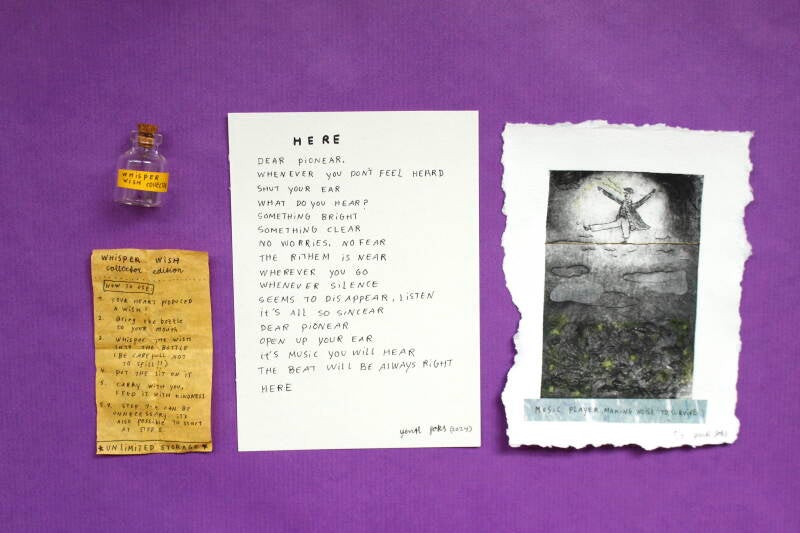 WHISPER
WISH COLLECTOR
WHISPER WISH
collector edition
HOW TO USE:
1. YOUR HEART PRODUCED
A WISH?
2. BRING the bottle
to your mouth
3. WHISPER THE WISH
INTO THE BOTTLE
(BE CAREFULL NOT
TO SPILL!!)
4. PUT THE LIT ON IT
5. CARRY WITH YOU,
FEED IT WITH KINDNESS
STEP 1-4 CAN BE
UNNECESSARY. IT'S
ALSO POSSIBLE TO START
AT STEP 5.
*UNLIMITED STORAGE*
HERE
DEAR PIONEAR,
WHENEVER YOU DON'T FEEL HEARD
SHUT YOUR EAR
WHAT DO YOU HEAR?
SOMETHING BRIGHT
SOMETHING CLEAR
NO WORRIES, NO FEAR
THE RITHEM IS NEAR
WHEREVER YOU GO
WHENEVER SILENCE
SEEMS TO DISAPPEAR, LISTEN
IT'S ALL SO SINCEAR
DEAR PIONEAR
OPEN UP YOUR EAR
IT'S MUSIC YOU WILL HEAR
THE BEAT WILL BE ALWAYS RIGHT
HERE
(2024)
MUSIC PLAYER, MAKING NOISE TO SURVIVE